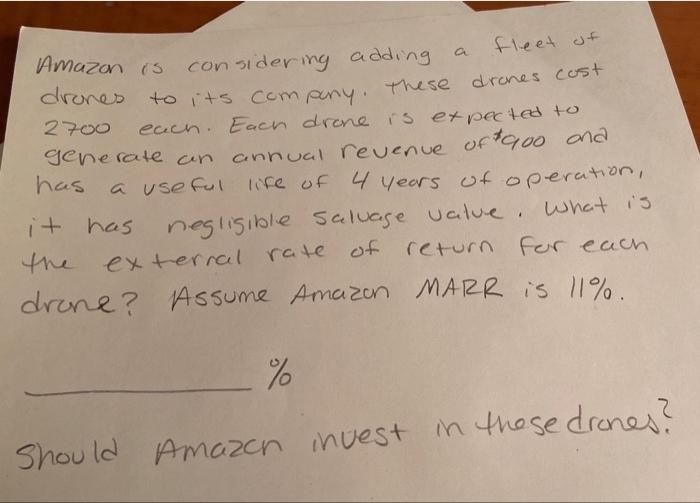 Amazon is considering adding a fleet of
drones to its company. These drones cost
2700 each. Each drone is expected to
generate an annual revenue of $900 and
has a useful life of 4 years of operation,
it has negligible salvage value. What is
the external rate of return for each
drone? Assume Amazon MARR is 11%.
%
Should Amazon invest in these drones?